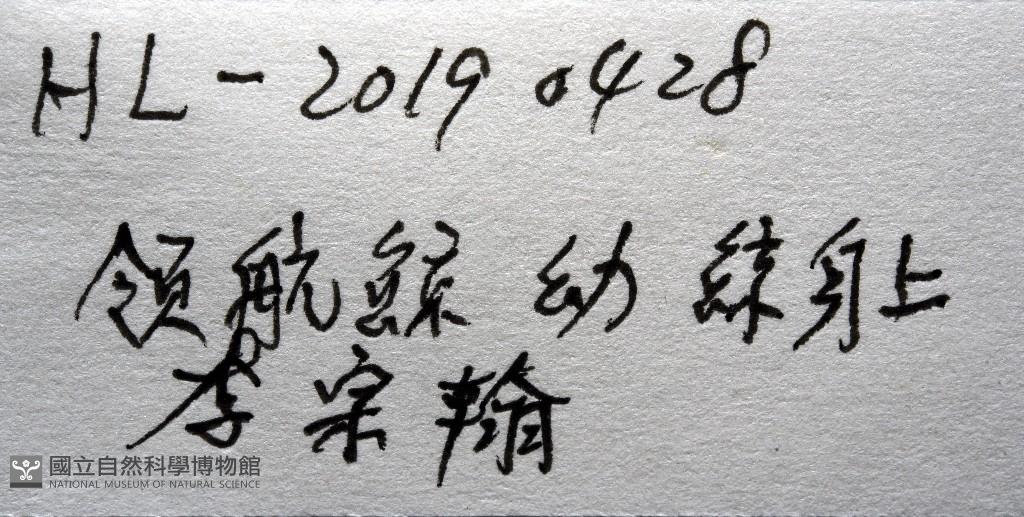 HL-20190428
領航鯨 幼 練身上
李宗翰
國立自然科學博物館
NATIONAL MUSEUM OF NATURAL SCIENCE